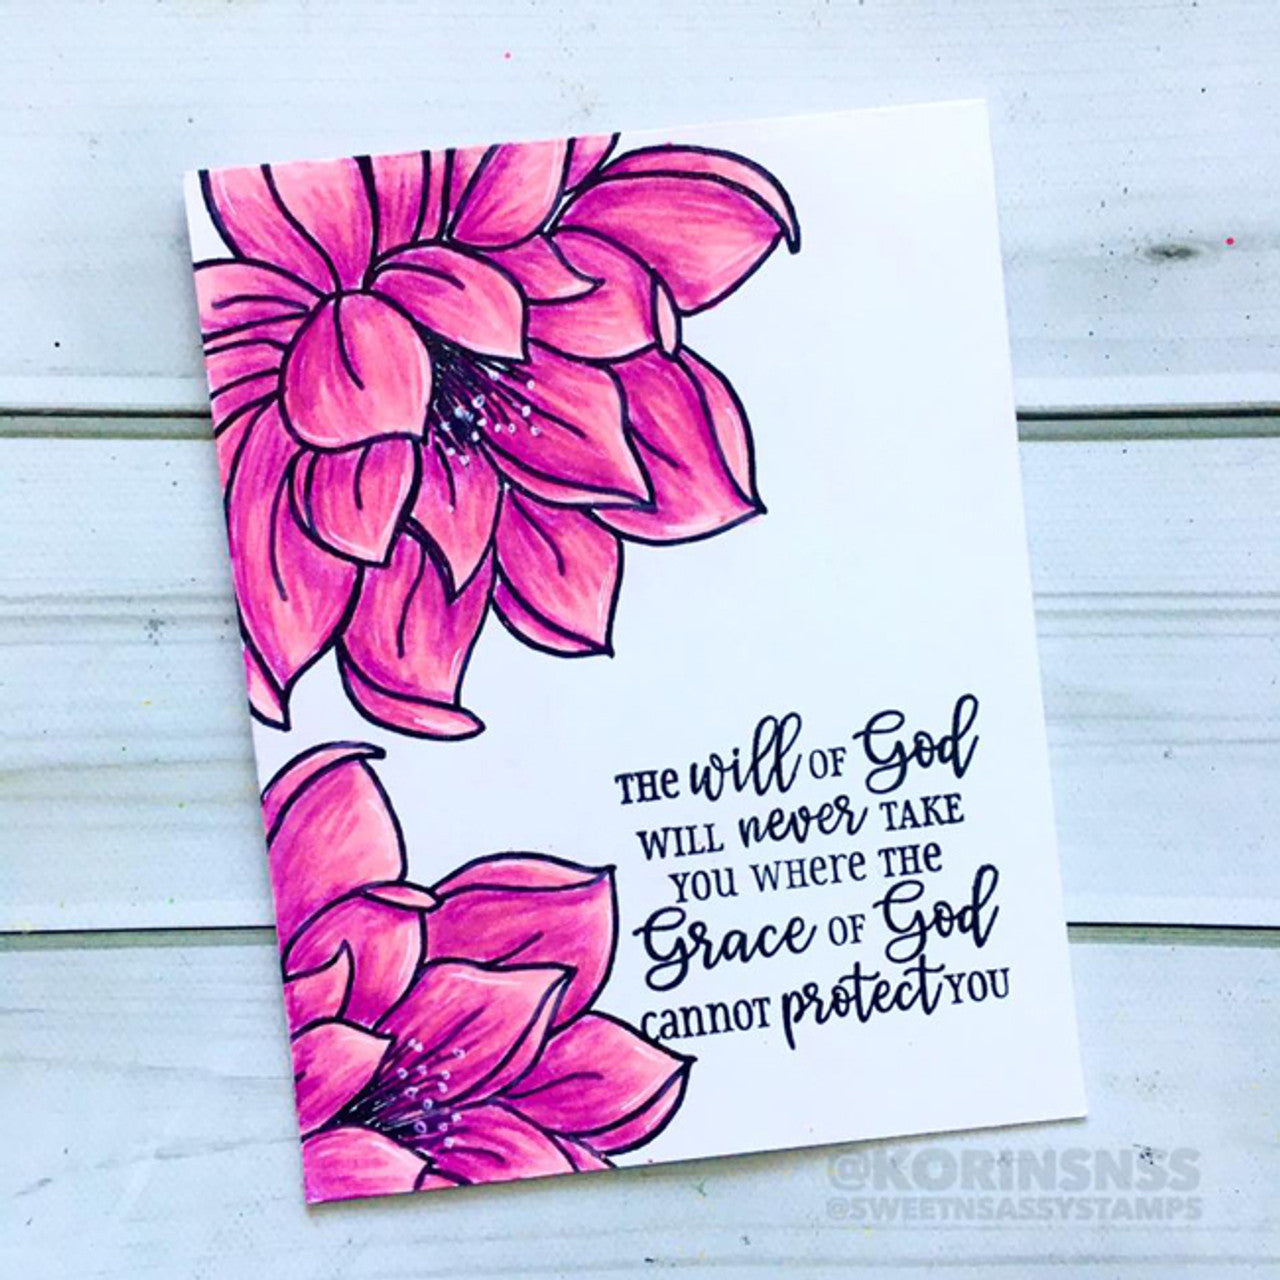 THE will OF God
WILL never TAKE
YOU WHERE THE
Grace OF God
CANNOT protect YOU
@KORINSNSS
@SWEETNSASSYSTAMPS